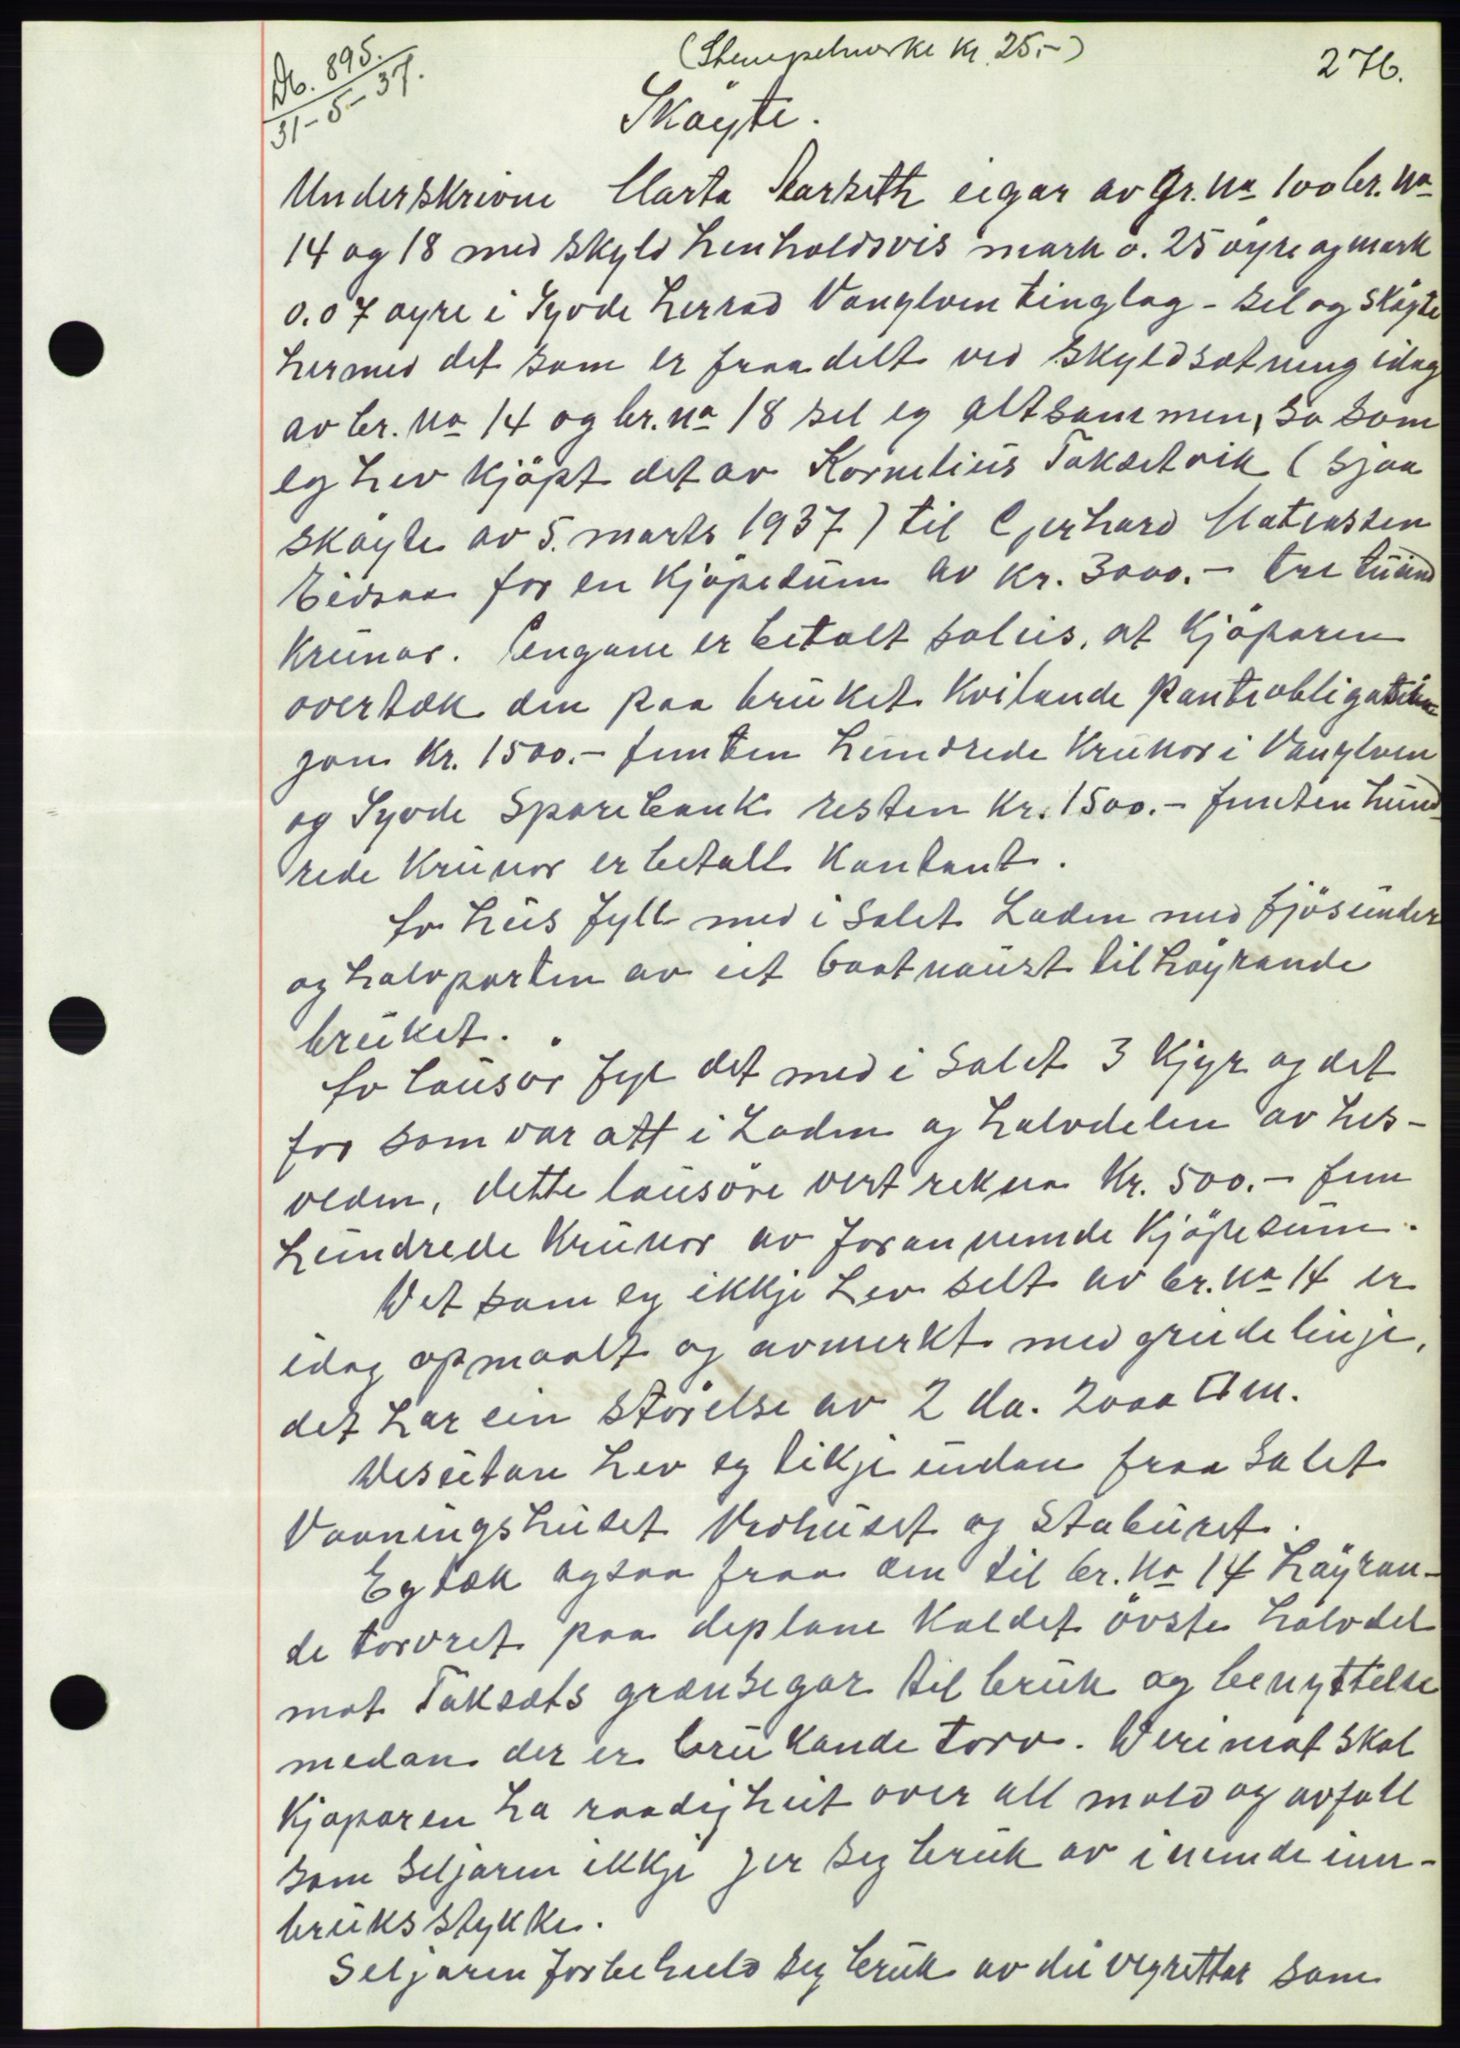 (Stempelmerke kr. 25.-)
276.
Db. 895.
31-5-37.
Skøyte.
Underskrivne Marta Aarseth eigar av Gr. No 100 br. No
14 og 18 med skyld henholdsvis mark 0.25 øyre og mark
0.07 øyre i Syvde herrad Vanylven tinglag - sel og skøyte
hermed det som er fraadelt ved skyldsætning idag
av br. No 14 og br. No 18 sel eg altsammen, so som
eg hev kjøpt det av Kornelius Taksetvik (sjaa
skøyte av 5. marts 1937) til Gerhard Matiassen
Eidsaa for en kjøpesum av kr. 3000.- tre tusind
krunor. Pengane er betalt soleis, at kjøparen
overtek den paa bruket kvilande pantobligation
gjon kr. 1500.- femten hundrede krunor i Vanylven
og Syvde Sparebank resten kr. 1500.- femten hund-
rede krunor er betalt kontant.
Av hus fyll med i salet Løden med fjøs under
og halvparten av eit baatnaust tilhøyrande
bruket.
Av lausør fyl det med i salet 3 kjyr og det
for som var att i Løden og halvdelen av hes-
veden, dette lausøre vert rekna kr. 500.- fem
hundrede krunor av forannemde kjøpesum.
Det som eg ikkje hev selt av br. No 14 er
idag opmaalt og avmerkt med greidelinje,
det har ein størelse av 2 da. 2000 □m.
Desutan hev eg tikje undan fraa salet
Vaaningshuset Vedhuset og Staburet.
Eg tek ogsaa fraa den til br. No 14 høyran-
de torvret paa deplane kaldet øvste halvdel
mot Taksæts grænsegar til bruk og benyttelse
medan der er brukande torv. Derimot skal
kjøparen ha raadigheit over all mold og avfall
som seljaren ikkje gjer seg bruk av i nemde inn-
bruksstykke.
Seljaren forbeheld seg bruk av dei vegrettar som